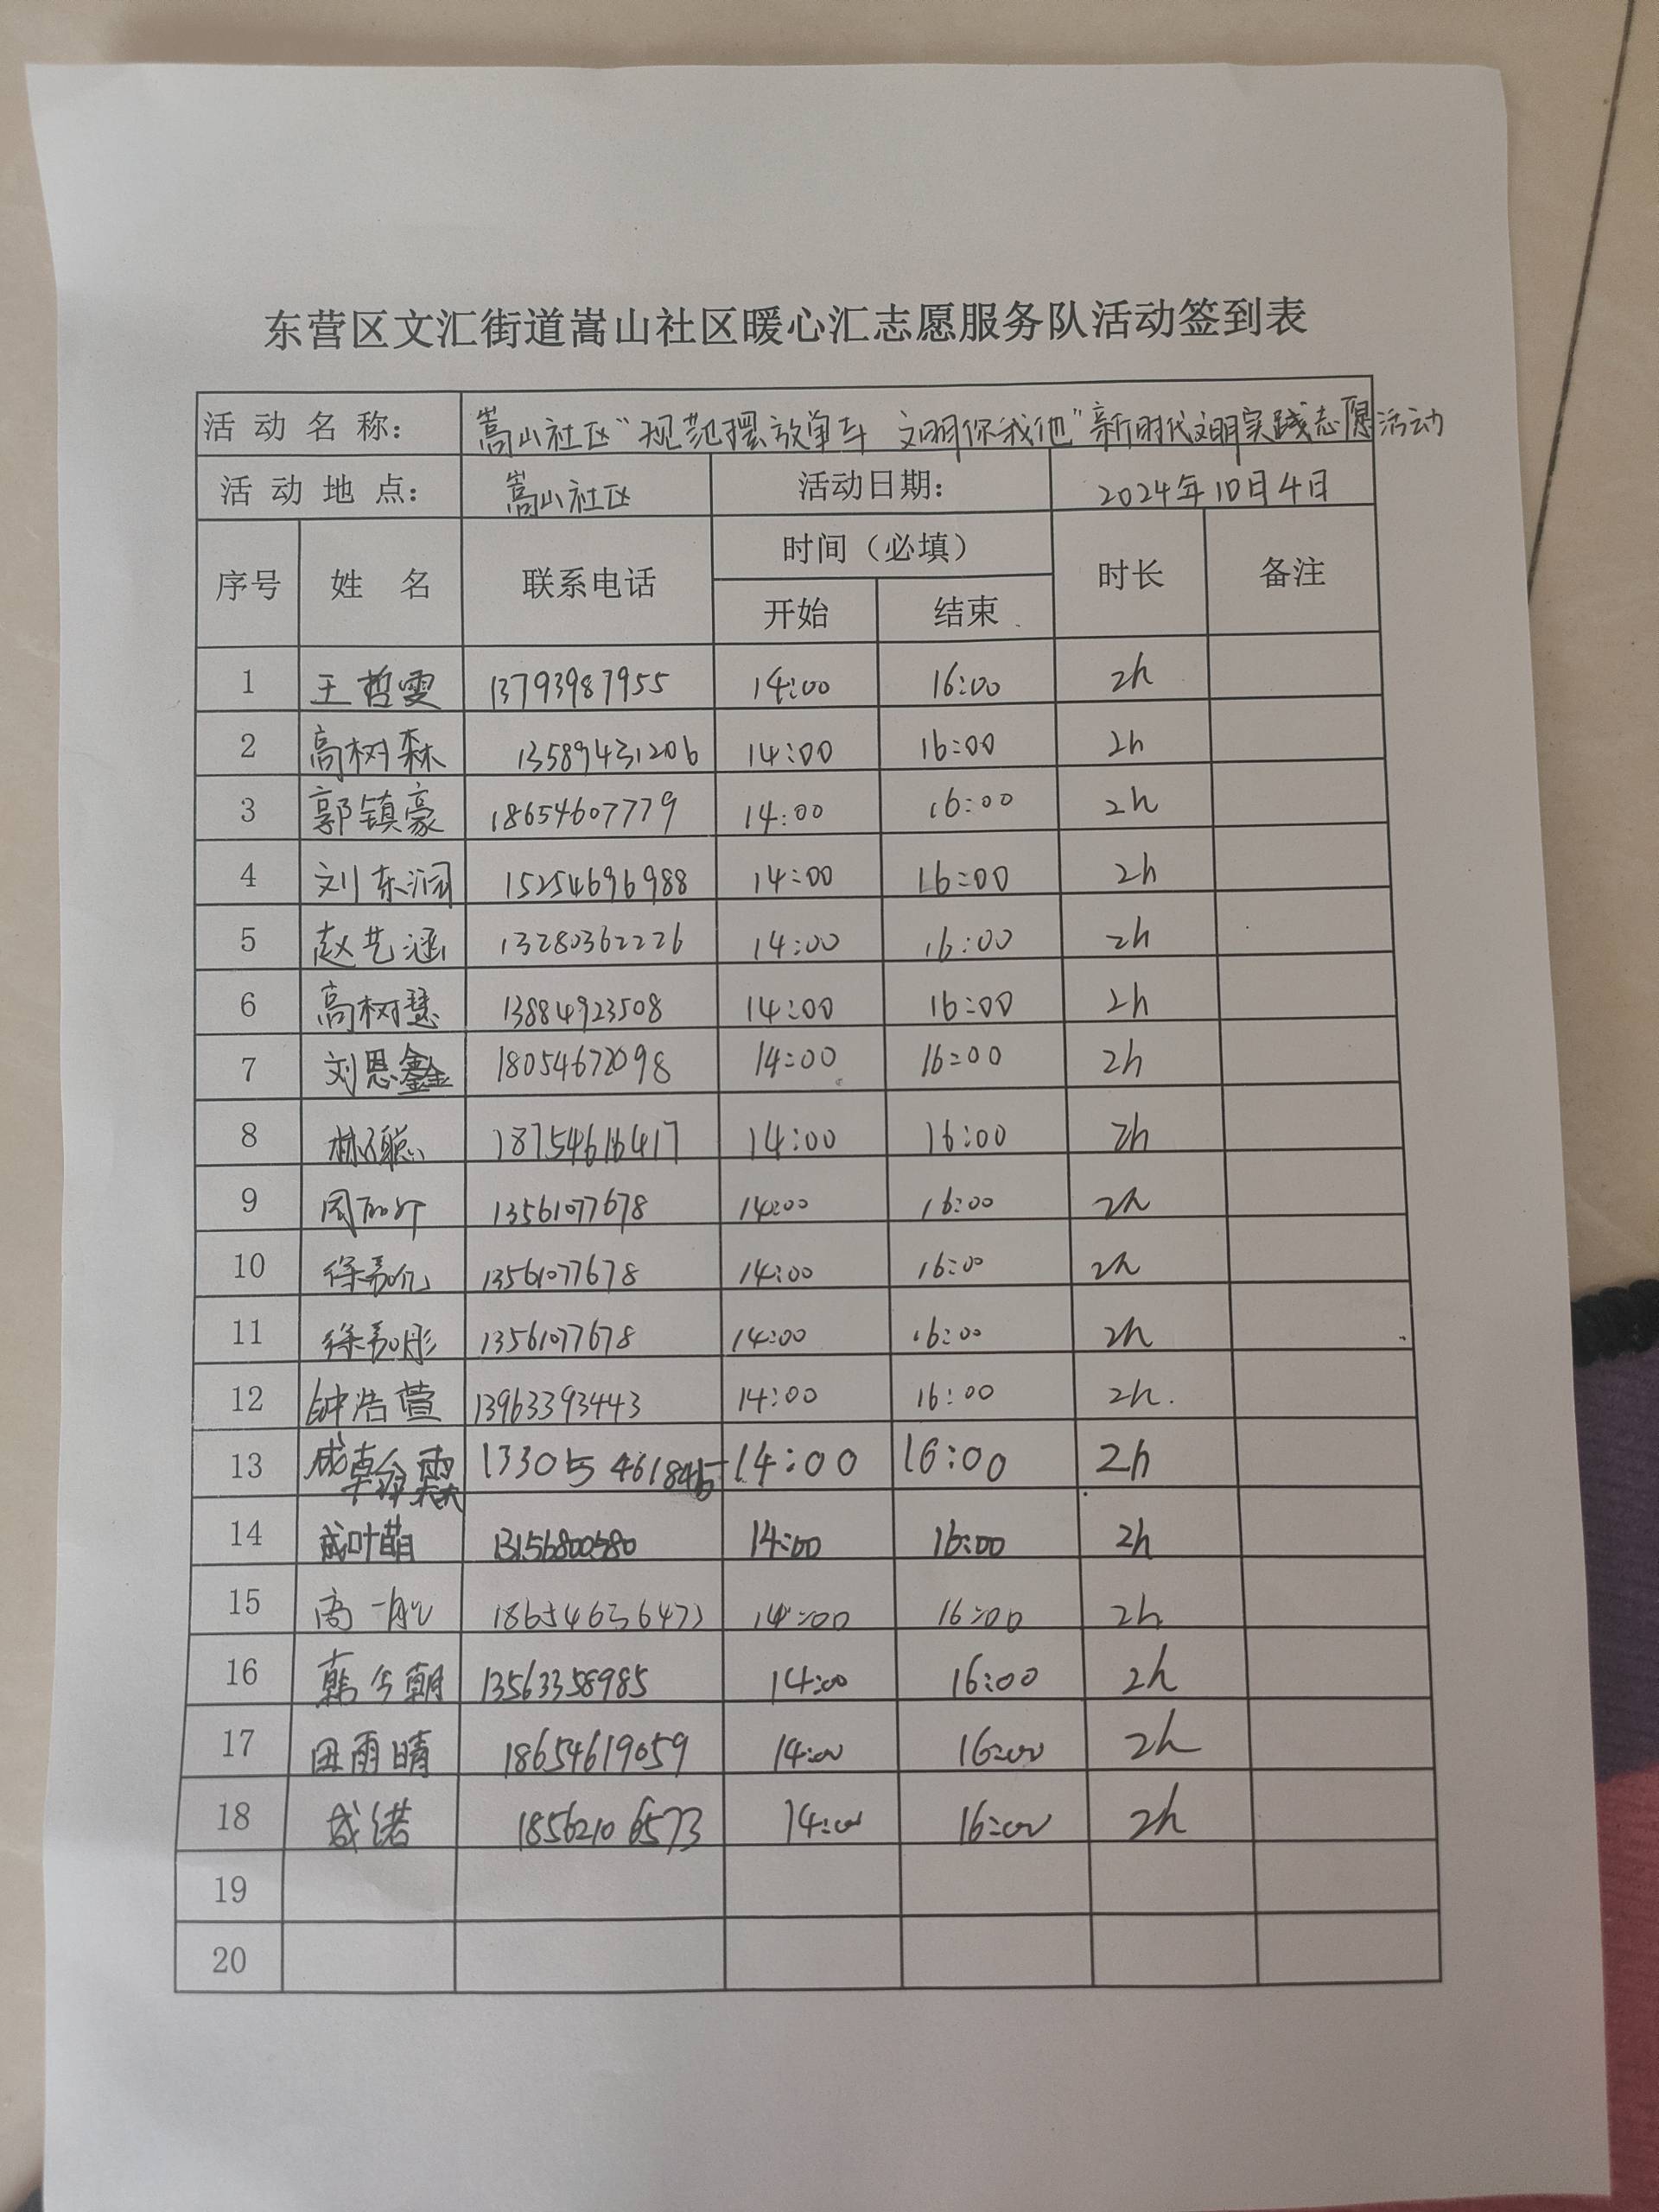 东营区文汇街道嵩山社区暖心汇志愿服务队活动签到表
活动名称： 嵩山社区“规范摆放单车 文明你我他”新时代文明实践志愿活动
活动地点： 嵩山社区 活动日期： 2024年10月4日
序号 姓名 联系电话 时间（必填） 时长 备注
开始 结束
1 王哲雯 13793987955 14:00 16:00 2h
2 高树森 13589431206 14:00 16:00 2h
3 郭镇豪 18654607779 14:00 16:00 2h
4 刘东润 15254696988 14:00 16:00 2h
5 赵艺涵 13280362226 14:00 16:00 2h
6 高树慧 13884923508 14:00 16:00 2h
7 刘恩鑫 18054672098 14:00 16:00 2h
8 18754616417 14:00 16:00 2h
9 13561077678 14:00 16:00 2h
10 13561077678 14:00 16:00 2h
11 徐嘉彤 13561077678 14:00 16:00 2h
12 钟浩萱 13963393443 14:00 16:00 2h.
13 14:00 16:00 2h
14 成叶萌 13156800580 14:00 16:00 2h
15 高一航 14:00 16:00 2h
16 韩今朝 13563358985 14:00 16:00 2h
17 田雨晴 18654619059 14:00 16:00 2h
18 成诺 18562106573 14:00 16:00 2h
19
20